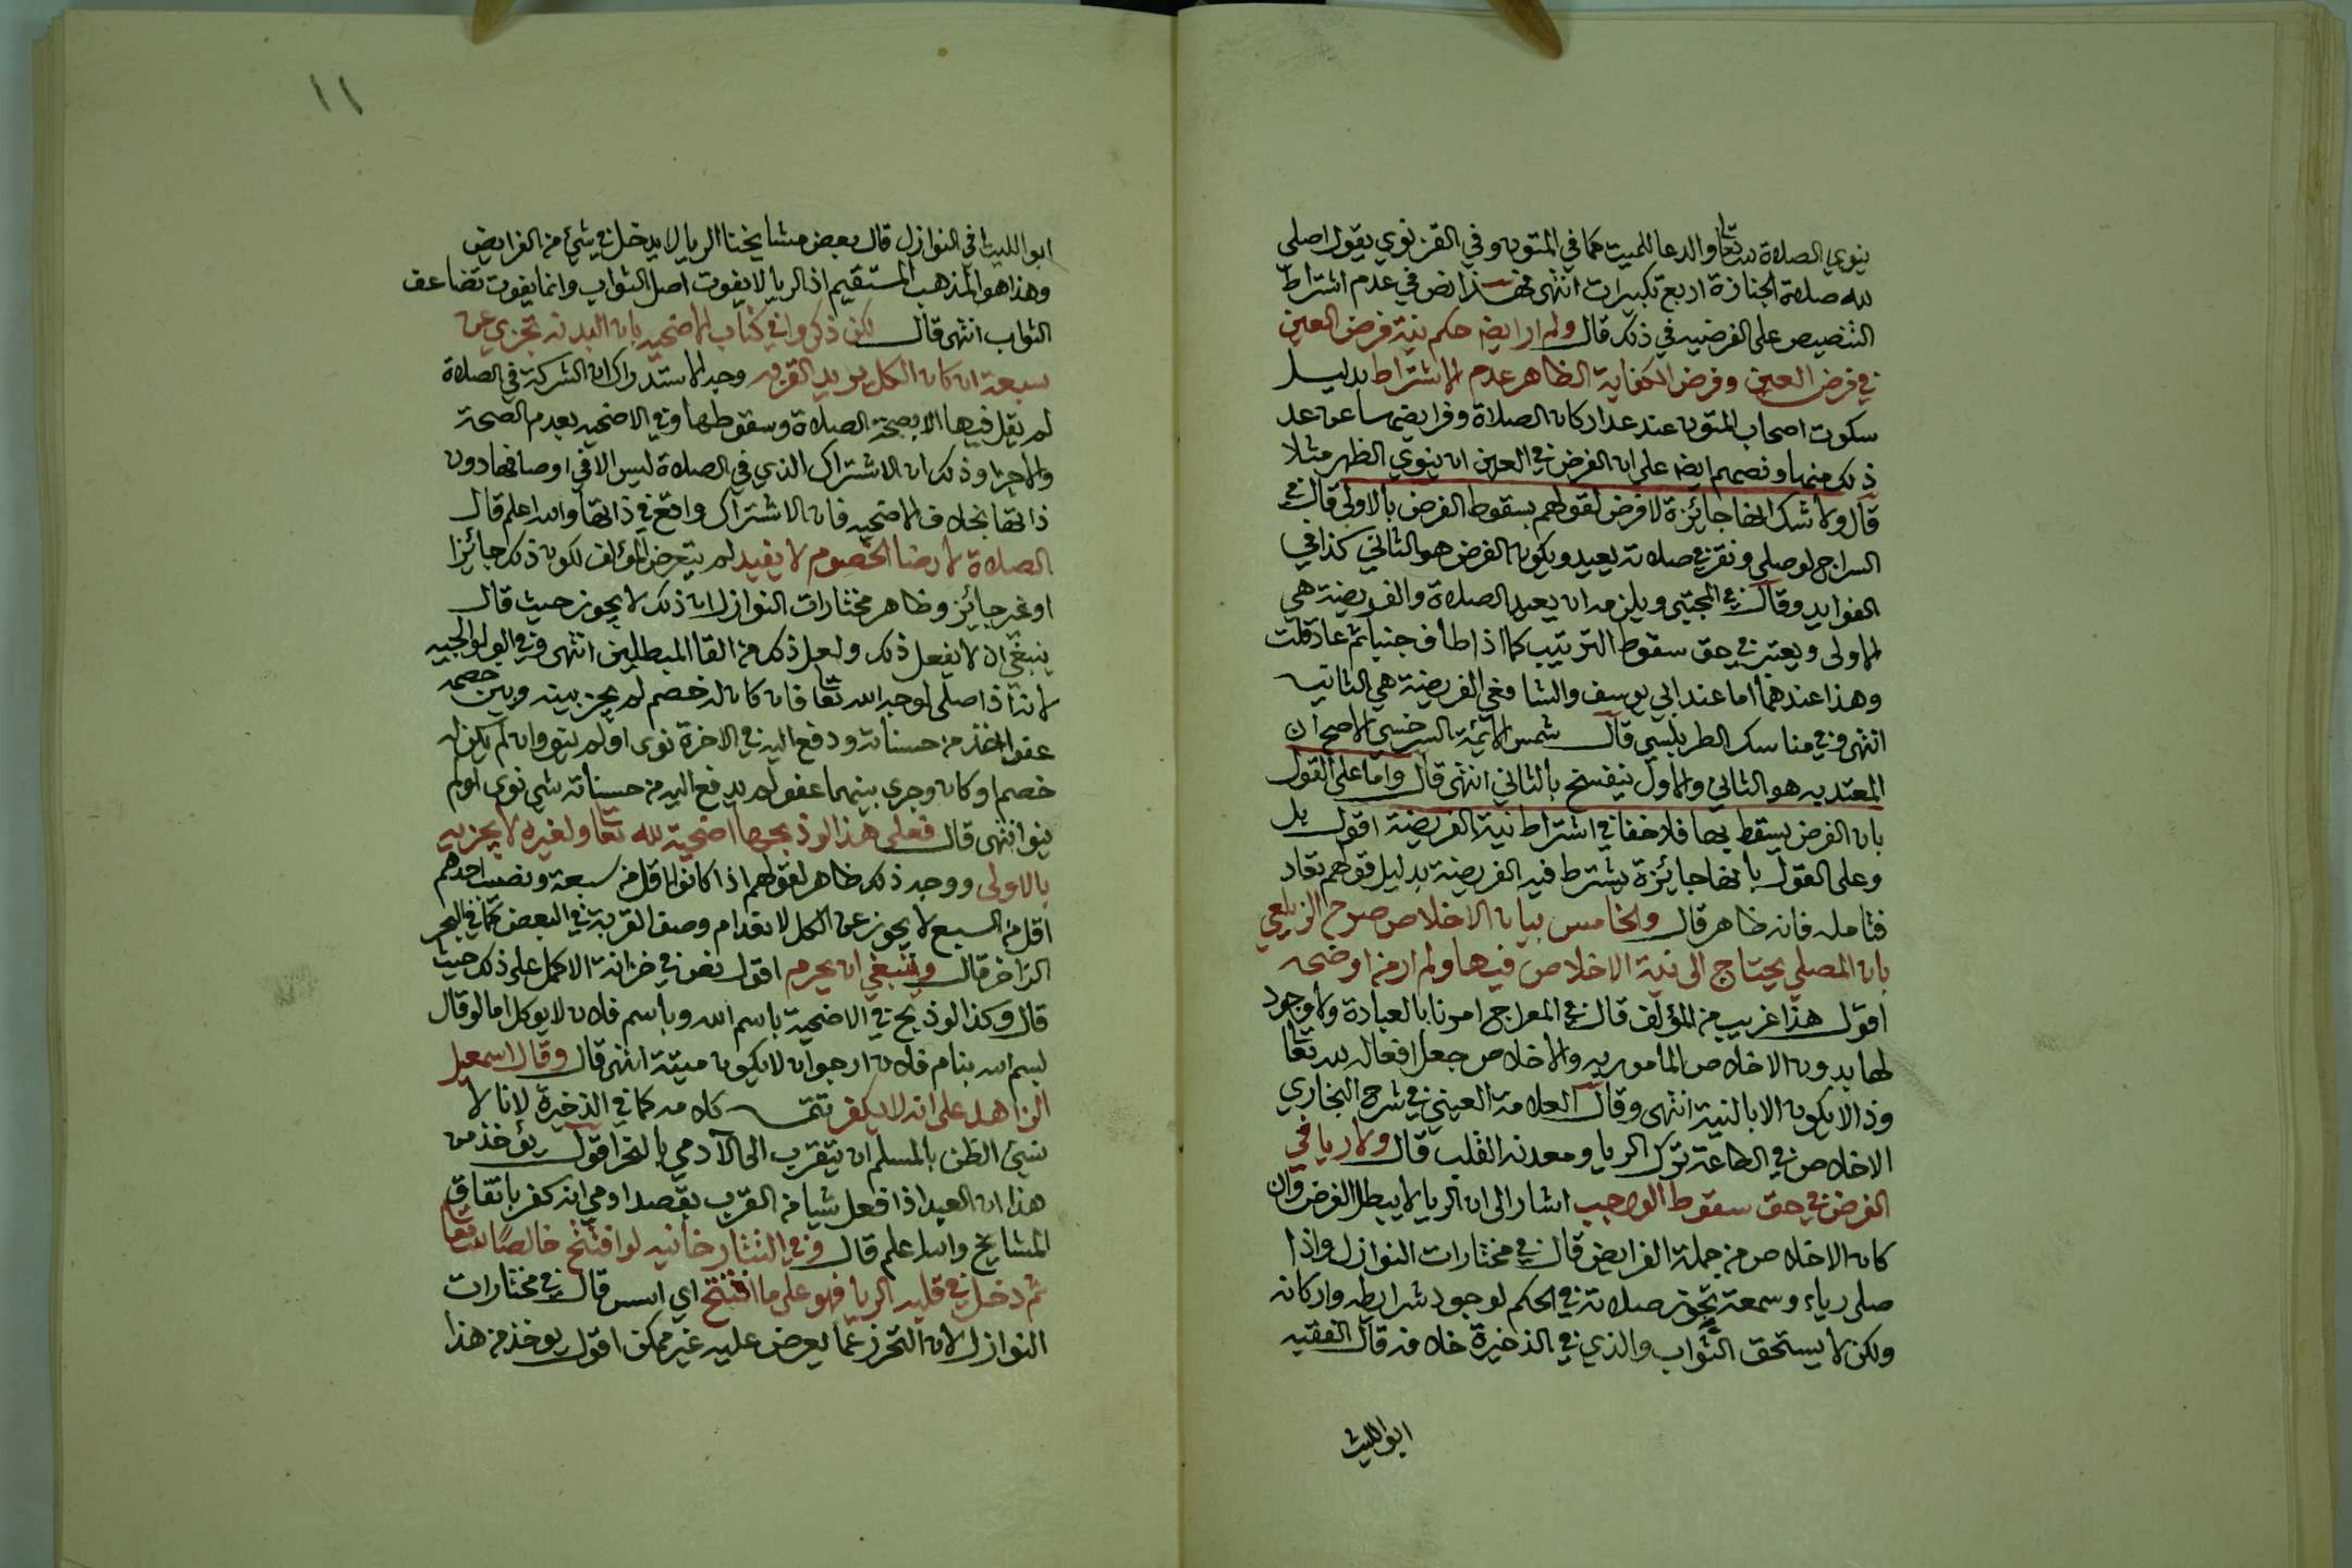 ينوي الصلاة لله تعا والدعا للميت كما في المتون وفي الغزنوي يقول اصلي
لله صلاة الجنازة اربع تكبيرات انتهى فهذا نص في عدم اشتراط
التنصيص على الفرضيه في ذلك قال ولم ار ايضا حكم نية فرض العين
في فرض العين وفرض الكفاية الظاهر عدم الاشتراط بدليل
سكوت اصحاب المتون عند عد اركان الصلاة وفرايضها عن عد
ذلك منها ونصهم ايضا على ان الفرض في العين ان ينوي الظهر مثلا
قال ولا شك انها جائزة لا فرض لقولهم بسقوط الفرض بالاولى قال في
السراج لو صلى ونقر في صلاته يعيد ويكون الفرض هو الثاني كذا في
الفوايد وقال في المجتبى ويلزمه ان يعيد الصلاة والفريضة هي
الاولى ويعتبر في حق سقوط الترتيب كما اذا طاف جنبا ثم عاد قلت
وهذا عندهما اما عند ابي يوسف والشافعي الفريضة هي الثانيه
انتهى وفي مناسك الطرابلسي قال شمس الائمة السرخسي الاصح ان
المعتد به هو الثاني والاول ينفسخ بالثاني انتهى قال واما على القول
بان الفرض يسقط بها فلا خفا في اشتراط نية الفريضة اقول بل
وعلى القول بانها جائزة يشترط فيه الفريضة بدليل قولهم تعاد
فتامله فانه ظاهر قال والخامس بيان الاخلاص صرح الزيلعي
بان المصلي يحتاج الى نية الاخلاص فيها ولم ار من اوضحه
اقول هذا غريب من المؤلف قال في المعراج امرنا بالعبادة ولا وجود
لها بدون الاخلاص المامور به والاخلاص جعل افعاله لله تعا
وذا لا يكون الا بالنية انتهى وقال العلامة العيني في شرح البخاري
الاخلاص في الطاعة ترك الريا ومعدنه القلب قال ولا ريا في
الفرض في حق سقوط الواجب اشار الى ان الريا لا يبطل الفرض وان
كان الاخلاص من جملة الفرايض قال في مختارات النوازل واذا
صلى رياء وسمعة تجوز صلاته في الحكم لوجود شرايطه واركانه
ولكن لا يستحق الثواب والذي في الذخيرة خلافه قال الفقيه
ابو الليث
١١
ابو الليث في النوازل قال بعض مشايخنا الريا لا يدخل في شيئ من الفرايض
وهذا هو المذهب المستقيم اذ الريا لا يفوت اصل الثواب وانما يفوت تضاعف
الثواب انتهى قال لكن ذكروا في كتاب الاضحيه بان البدنه تجزي عن
سبعة ان كان الكل يريد القربه وجه الاستدراك ان الشركة في الصلاة
لم يقل فيها الا بصحة الصلاة وسقوطها وفي الاضحيه بعدم الصحة
والاجزا وذلك ان الاشتراك الذي في الصلاة ليس الا في اوصافها دون
ذاتها بخلاف الاضحيه فان الاشتراك واقع في ذاتها والله اعلم قال
الصلاة لارضا الخصوم لا يفيد لم يتعرض المؤلف لكون ذلك جائزا
او غير جائز وظاهر مختارات النوازل ان ذلك لا يجوز حيث قال
ينبغي ان لا يفعل ذلك ولعل ذلك من القا المبطلين انتهى وفي الولوالجيه
لانه اذا صلى لوجه الله تعا فان كان له خصم لم يجز بينه وبين خصمه
عفوا اخذ من حسناته ودفع اليه في الاخرة نوى او لم ينو وان لم يكن له
خصم او كان وجرى بينهما عفو لم يدفع اليه من حسناته شي نوى او لم
ينو انتهى قال فعلى هذا لو ذبحها اضحية لله تعا ولغيره لا يجزيه
بالاولى ووجه ذلك ظاهر لقولهم اذا كانوا اقل من سبعة ونصيب احدهم
اقل من السبع لا يجوز عن الكل لانعدام وصف القربة في البعض كما في البحر
الزاخر قال وينبغي ان يحرم اقول نص في خزانة الاكمل على ذلك حيث
قال وكذا لو ذبح في الاضحية باسم الله وباسم فلان لا يوكل اما لو قال
بسم الله بنام فلان ارجو ان لا يكون ميتة انتهى قال وقال اسمعيل
الزاهد على انه لا يكفر تتمه كلامه كما في الذخيرة لانا لا
نسيئ الظن بالمسلم ان يتقرب الى الآدمي بالنحر اقول يؤخذ من
هذا ان العبد اذا فعل شيا من القرب بقصد ادمي انه كفر باتفاق
المشايخ والله اعلم قال وفي التتارخانيه لو افتتح خالصا لله تعا
ثم دخل في قلبه الريا فهو على ما افتتح اي اسس قال في مختارات
النوازل لان التحرز عما يعرض عليه غير ممكن اقول يوخذ من هذا